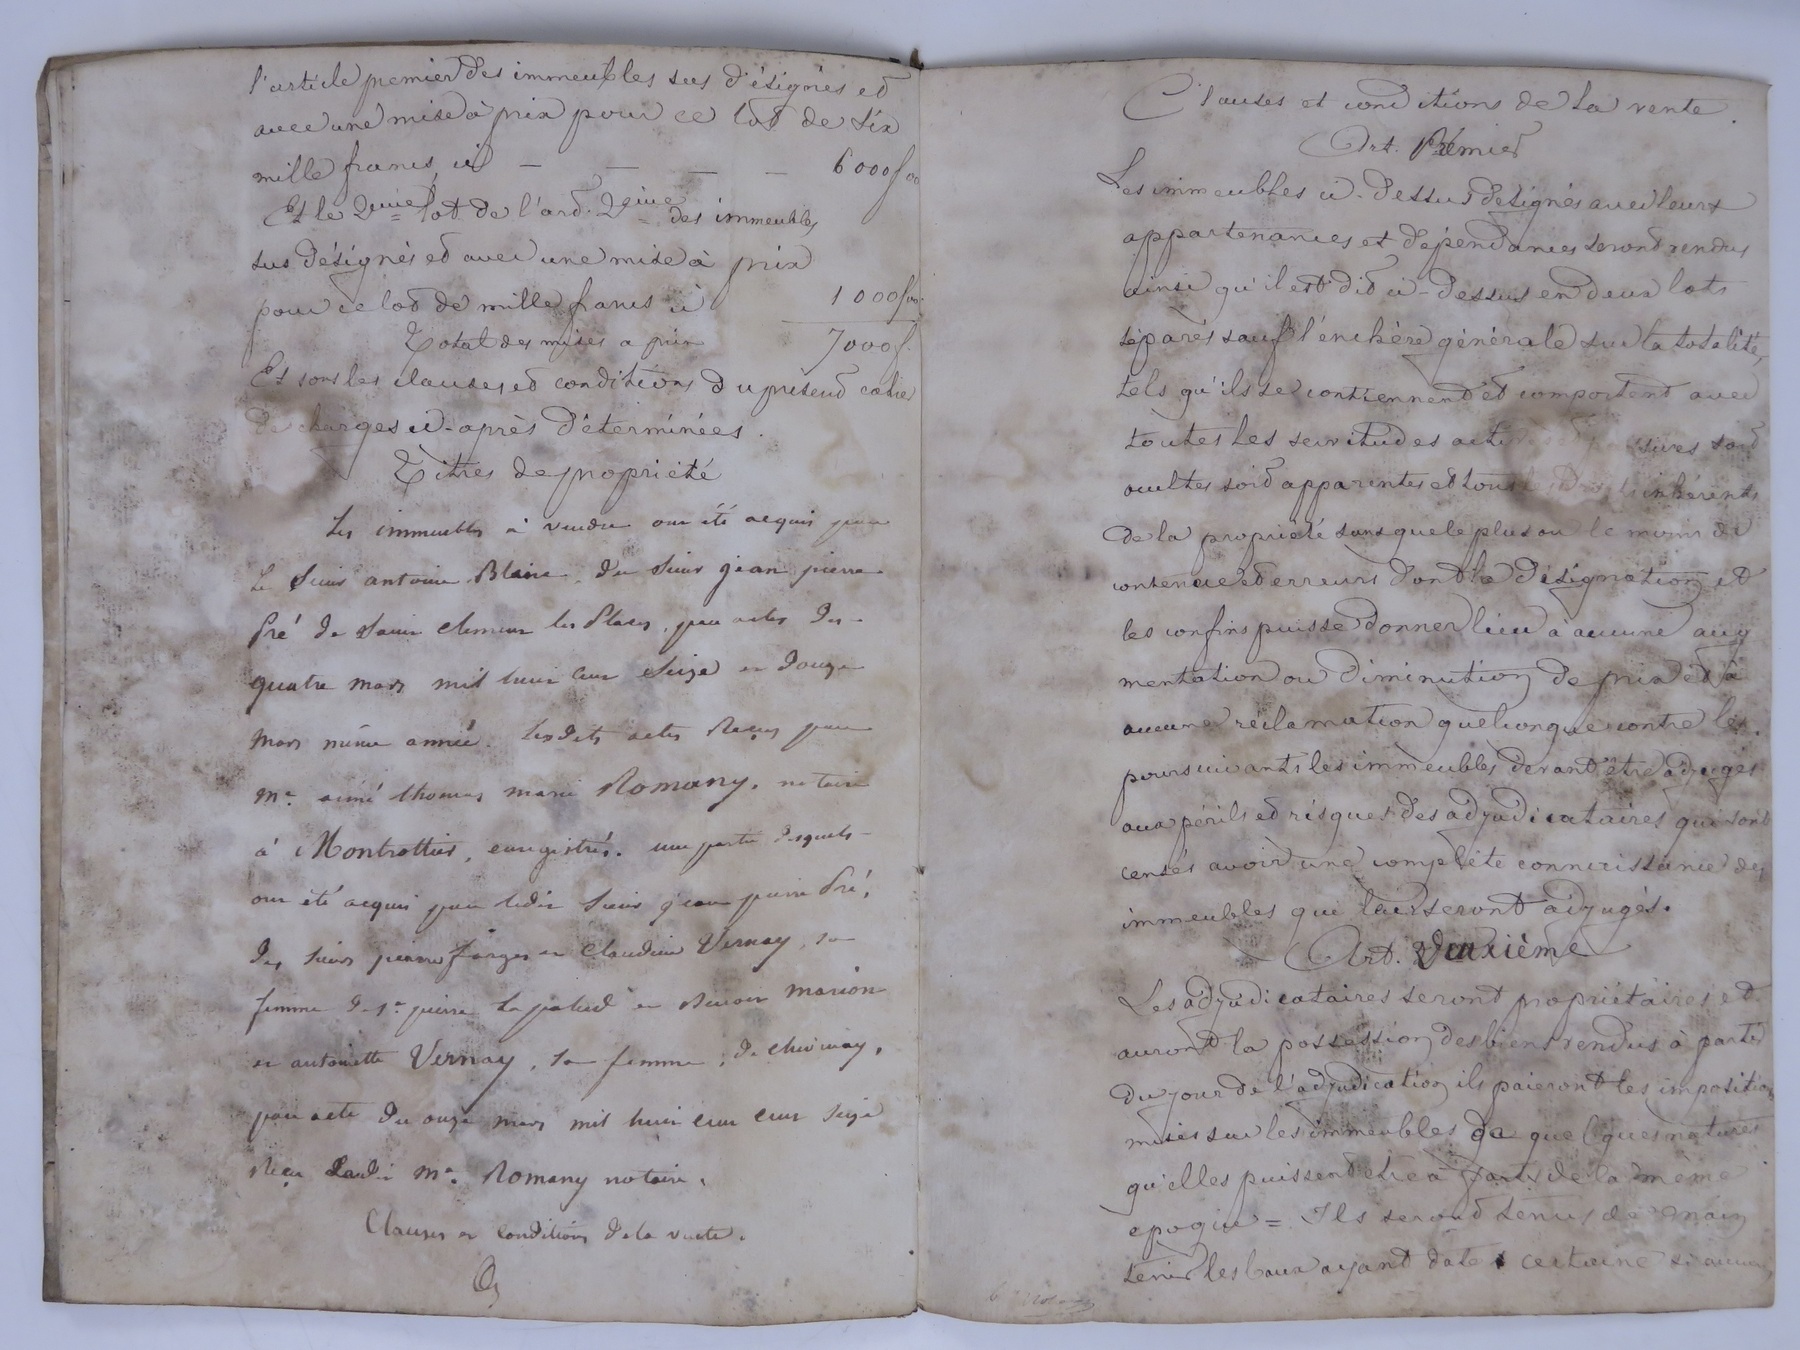 l'article premier des immeubles sus désignés et
avec une mise à prix pour ce lot de six
mille francs, ci — — — — 6000f00
Et le 2ème lot de l'art. 2ème des immeubles
sus désignés et avec une mise à prix
pour ce lot de mille francs ci 1000f00
Total des mises a prix 7000f.
Et sous les clauses et conditions du présent cahier
de charges ci-après déterminées.
Titres de propriété
Les immeubles à vendre ont été acquis par
le sieur antoine Blanc, du sieur jean pierre
Pré de saint clement les Places, par actes des
quatre mars mil huit cent seize et douze
mars même année. Lesdits actes Reçus par
Me. aimé thomas marie Romany, notaire
à Montrottier, enregistrés. une partie desquels
ont été acquis par ledit sieur jean pierre Pré,
des sieurs pierre forges et Claudine Vernay, sa
femme de sr. pierre et Benoit marion
et antoinette Vernay, sa femme, de
par acte du onze mars mil huit cent cent seize
Reçu Me. Romany notaire.
Clauses et conditions de la vente.
Clauses et conditions de la vente.
Art. Premier
Les immeubles ci-dessus désignés avec leurs
appartenances et dépendances seront vendus
ainsi qu'il est dit ci-dessus en deux lots
séparés sauf l'enchère générale sur la totalité,
tels qu'ils se contiennent et comportent avec
toutes les servitudes actives et passives soit
ocultes soit apparentes et tous les droits inhérents
de la propriété sans que le plus ou le moins de
contenue et erreurs dont la désignation et
les confins puisse donner lieu à aucune aug
mentation ou diminution de prix et à
aucune réclamation quelconque contre les
poursuivants les immeubles devant être adjugés
aux périls et risques des adjudicataires qui sont
censés avoir une complète connaissance des
immeubles qui leur seront adjugés.
Art. Deuxième
Les adjudicataires seront propriétaires et
auront la possession des biens vendus à partir
du jour de l'adjudication ils paieront les imposition
mises sur les immeubles de quelques natures
qu'elles puissent etre à partir de la même
epoque = Ils seront tenus de main
tenir les baux ayant date certaine si aucun,